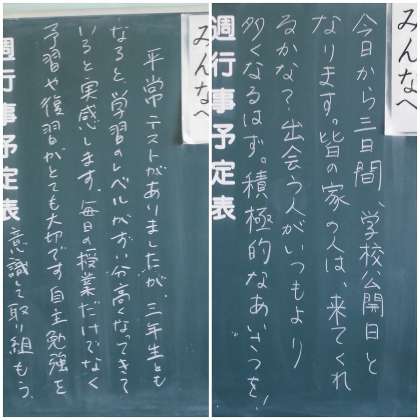 みんなへ
平常テストがありましたが、三年生とも
なると学習のレベルがずい分高くなってきて
いると実感します。毎日の授業だけでなく
予習や復習がとても大切です。自主勉強を
意識して取り組もう。
週行事予定表
みんなへ
今日から三日間、学校公開日と
なります。皆の家の人は、来てくれ
るかな?出会う人がいつもより
多くなるはず。積極的なあいさつを!
週行事予定表